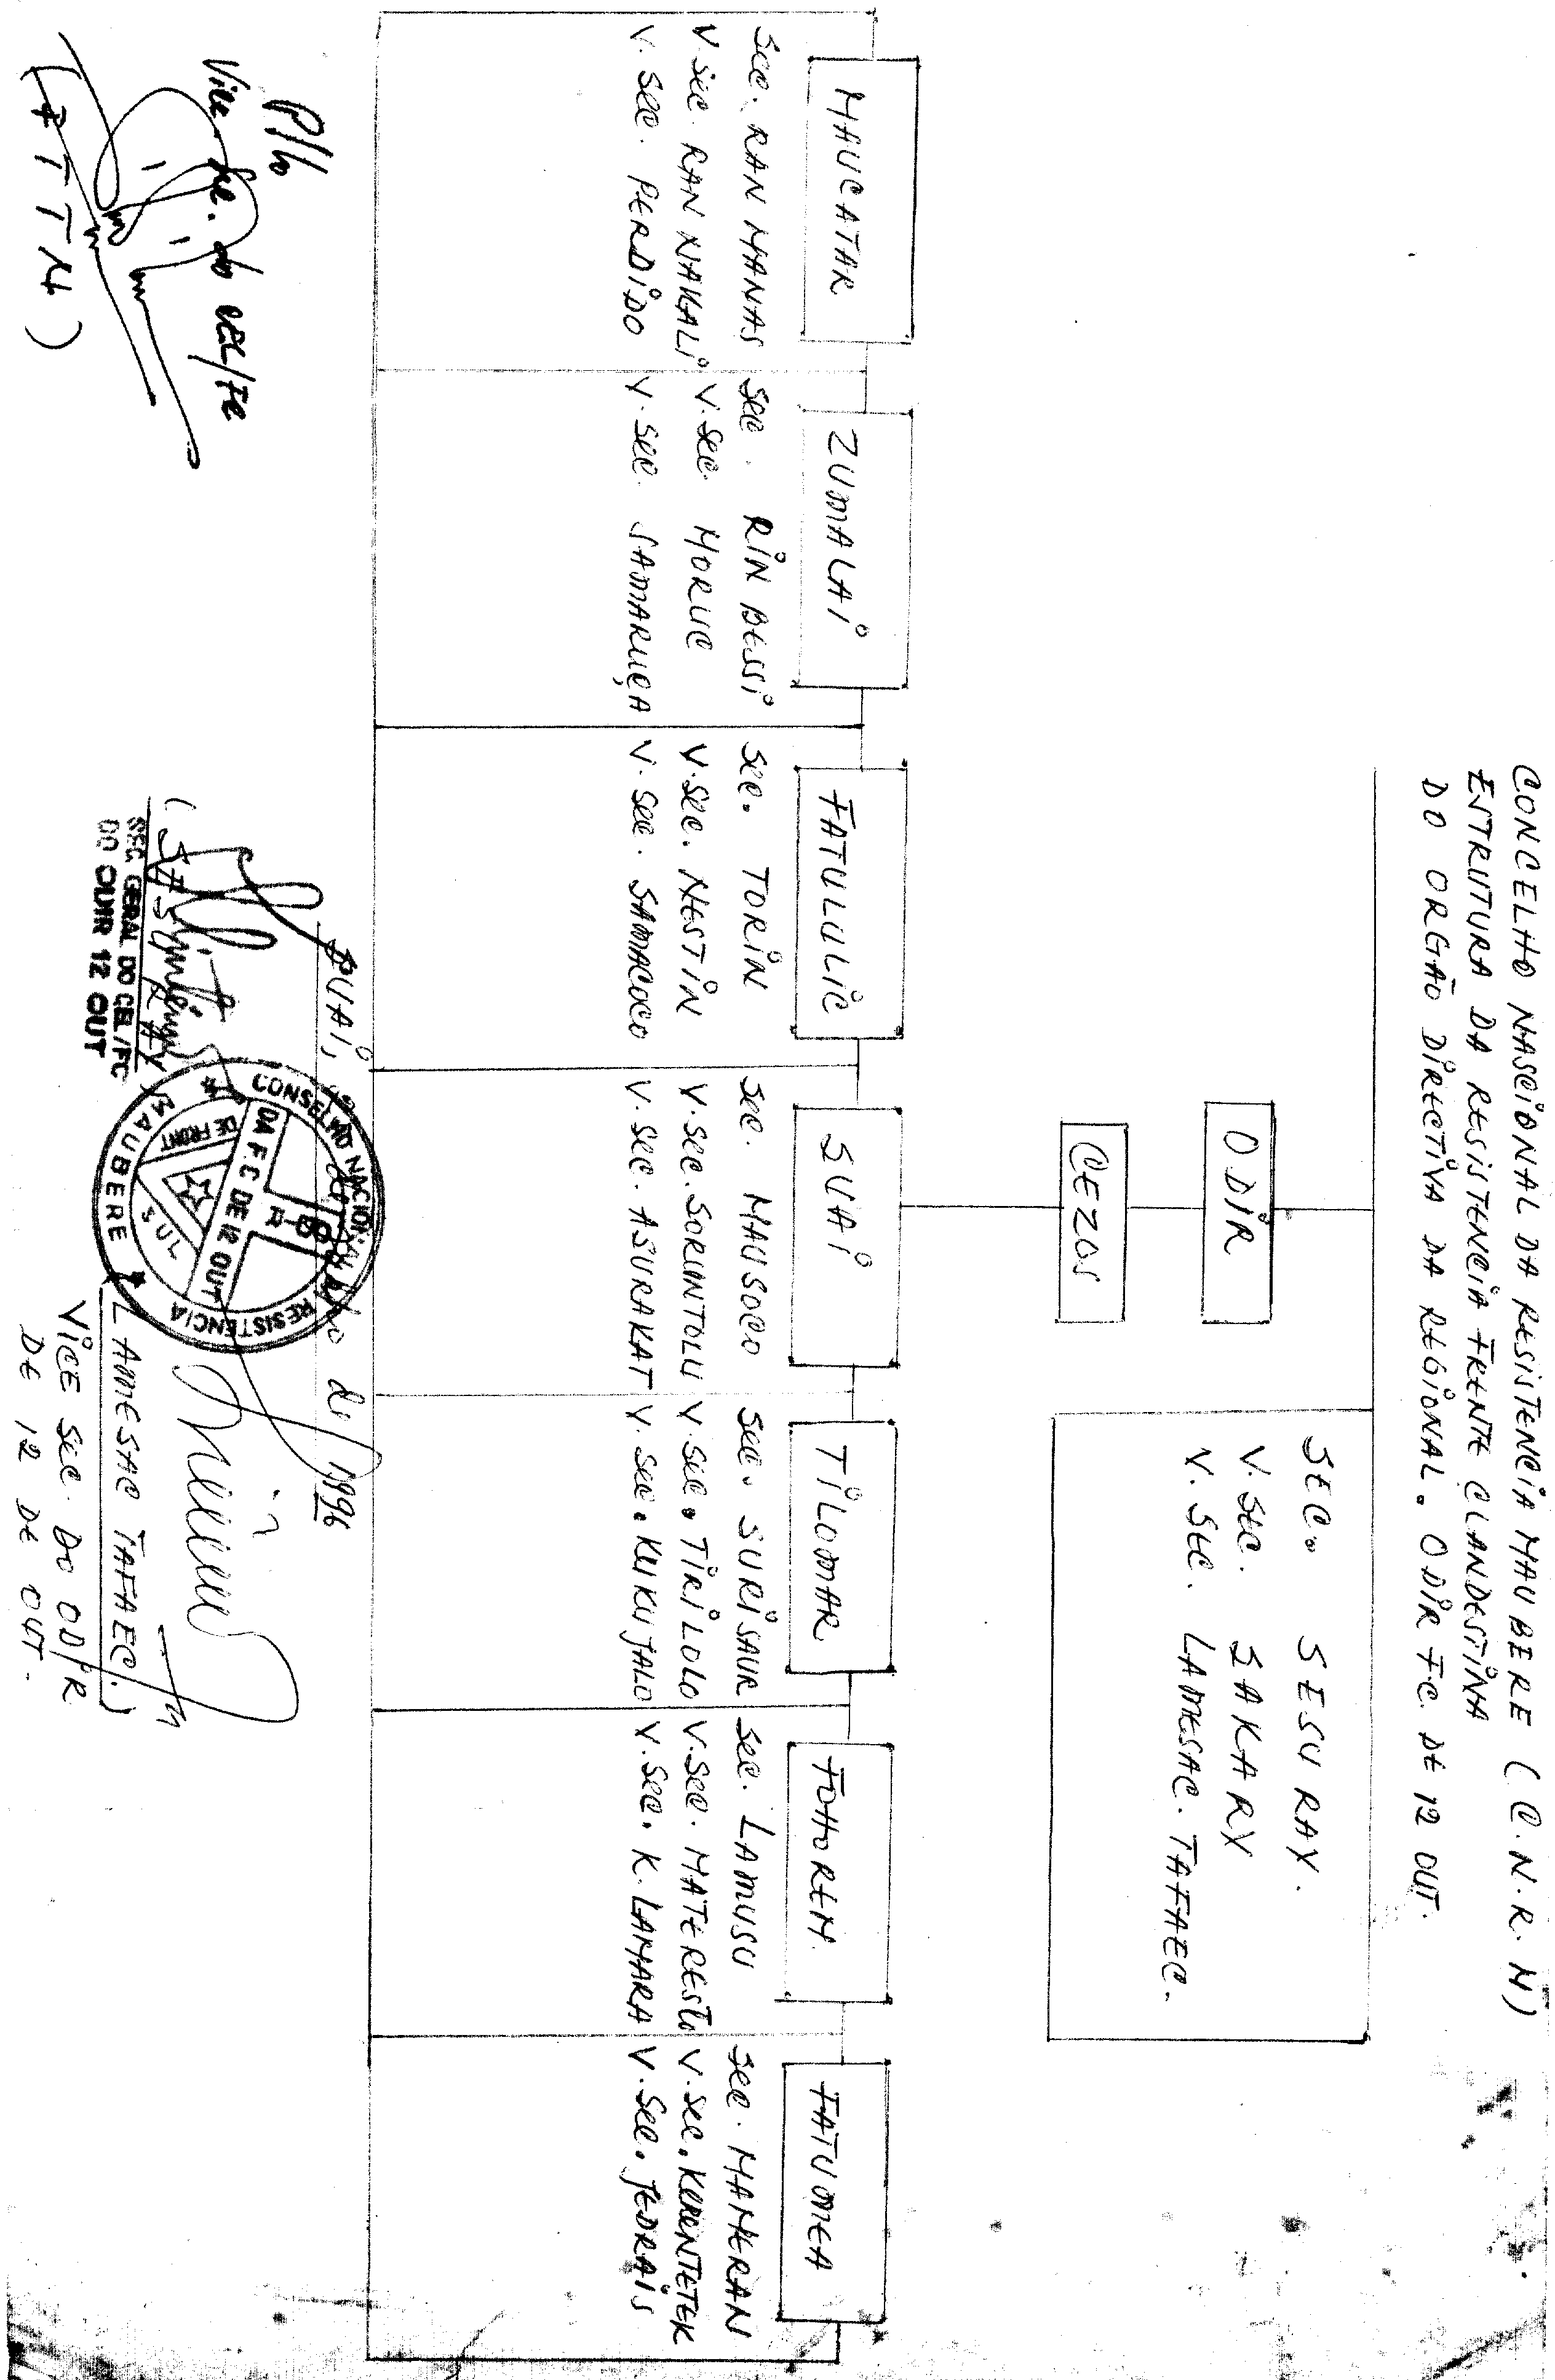 CONCELHO NASCIONAL DA RESISTENCIA MAUBERE (C.N.R.M)
ESTRUTURA DA RESISTENCIA FRENTE CLANDESTINA
DO ORGÃO DIRECTIVA DA REGIONAL. ODIR FC. DE 12 OUT.
ODIR
SEC. SESURAY.
V. SEC. SAKARY
V. SEC. LAMESAC. TAFAEC.
CEZOS
MAUCATAR
SEC. RAN MANAS
V. SEC. RAN NAKALI
V. SEC. PERDIDO
ZUMALAI
SEC. RIN BESSI
V. SEC MORUC
V. SEC. SAMARUÇA
FATULULIC
SEC. TORIN
V. SEC. NESTIN
V. SEC. SAMACOCO
SUAI
SEC. MAUSOCO
V. SEC. SORUNTOLU
V. SEC. ASURAKAT
TILOMAR
SEC. SURISAUR
V. SEC. TIRILOLO
V. SEC. KUKUJALO
FOHOREM
SEC. LAMUSU
V. SEC. MATERESTU
V. SEC. K. LAMARA
FATUMEA
SEC. MAMERAN
V. SEC. KERENTETEK
V. SEC. JEDRAIS
SUAI, de 1996
P/lo
Vice Se. do CEL/FC
SEC GERAL DO CEL/FC
DO OUIR 12 OUT
CONSELHO NACIONAL DA RESISTENCIA MAUBERE
DA F.C DE 12 OUT
DE FRONT
SUL
LAMESAC TAFAEC.)
VICE SEC. DO ODIR
DE 12 DE OUT.